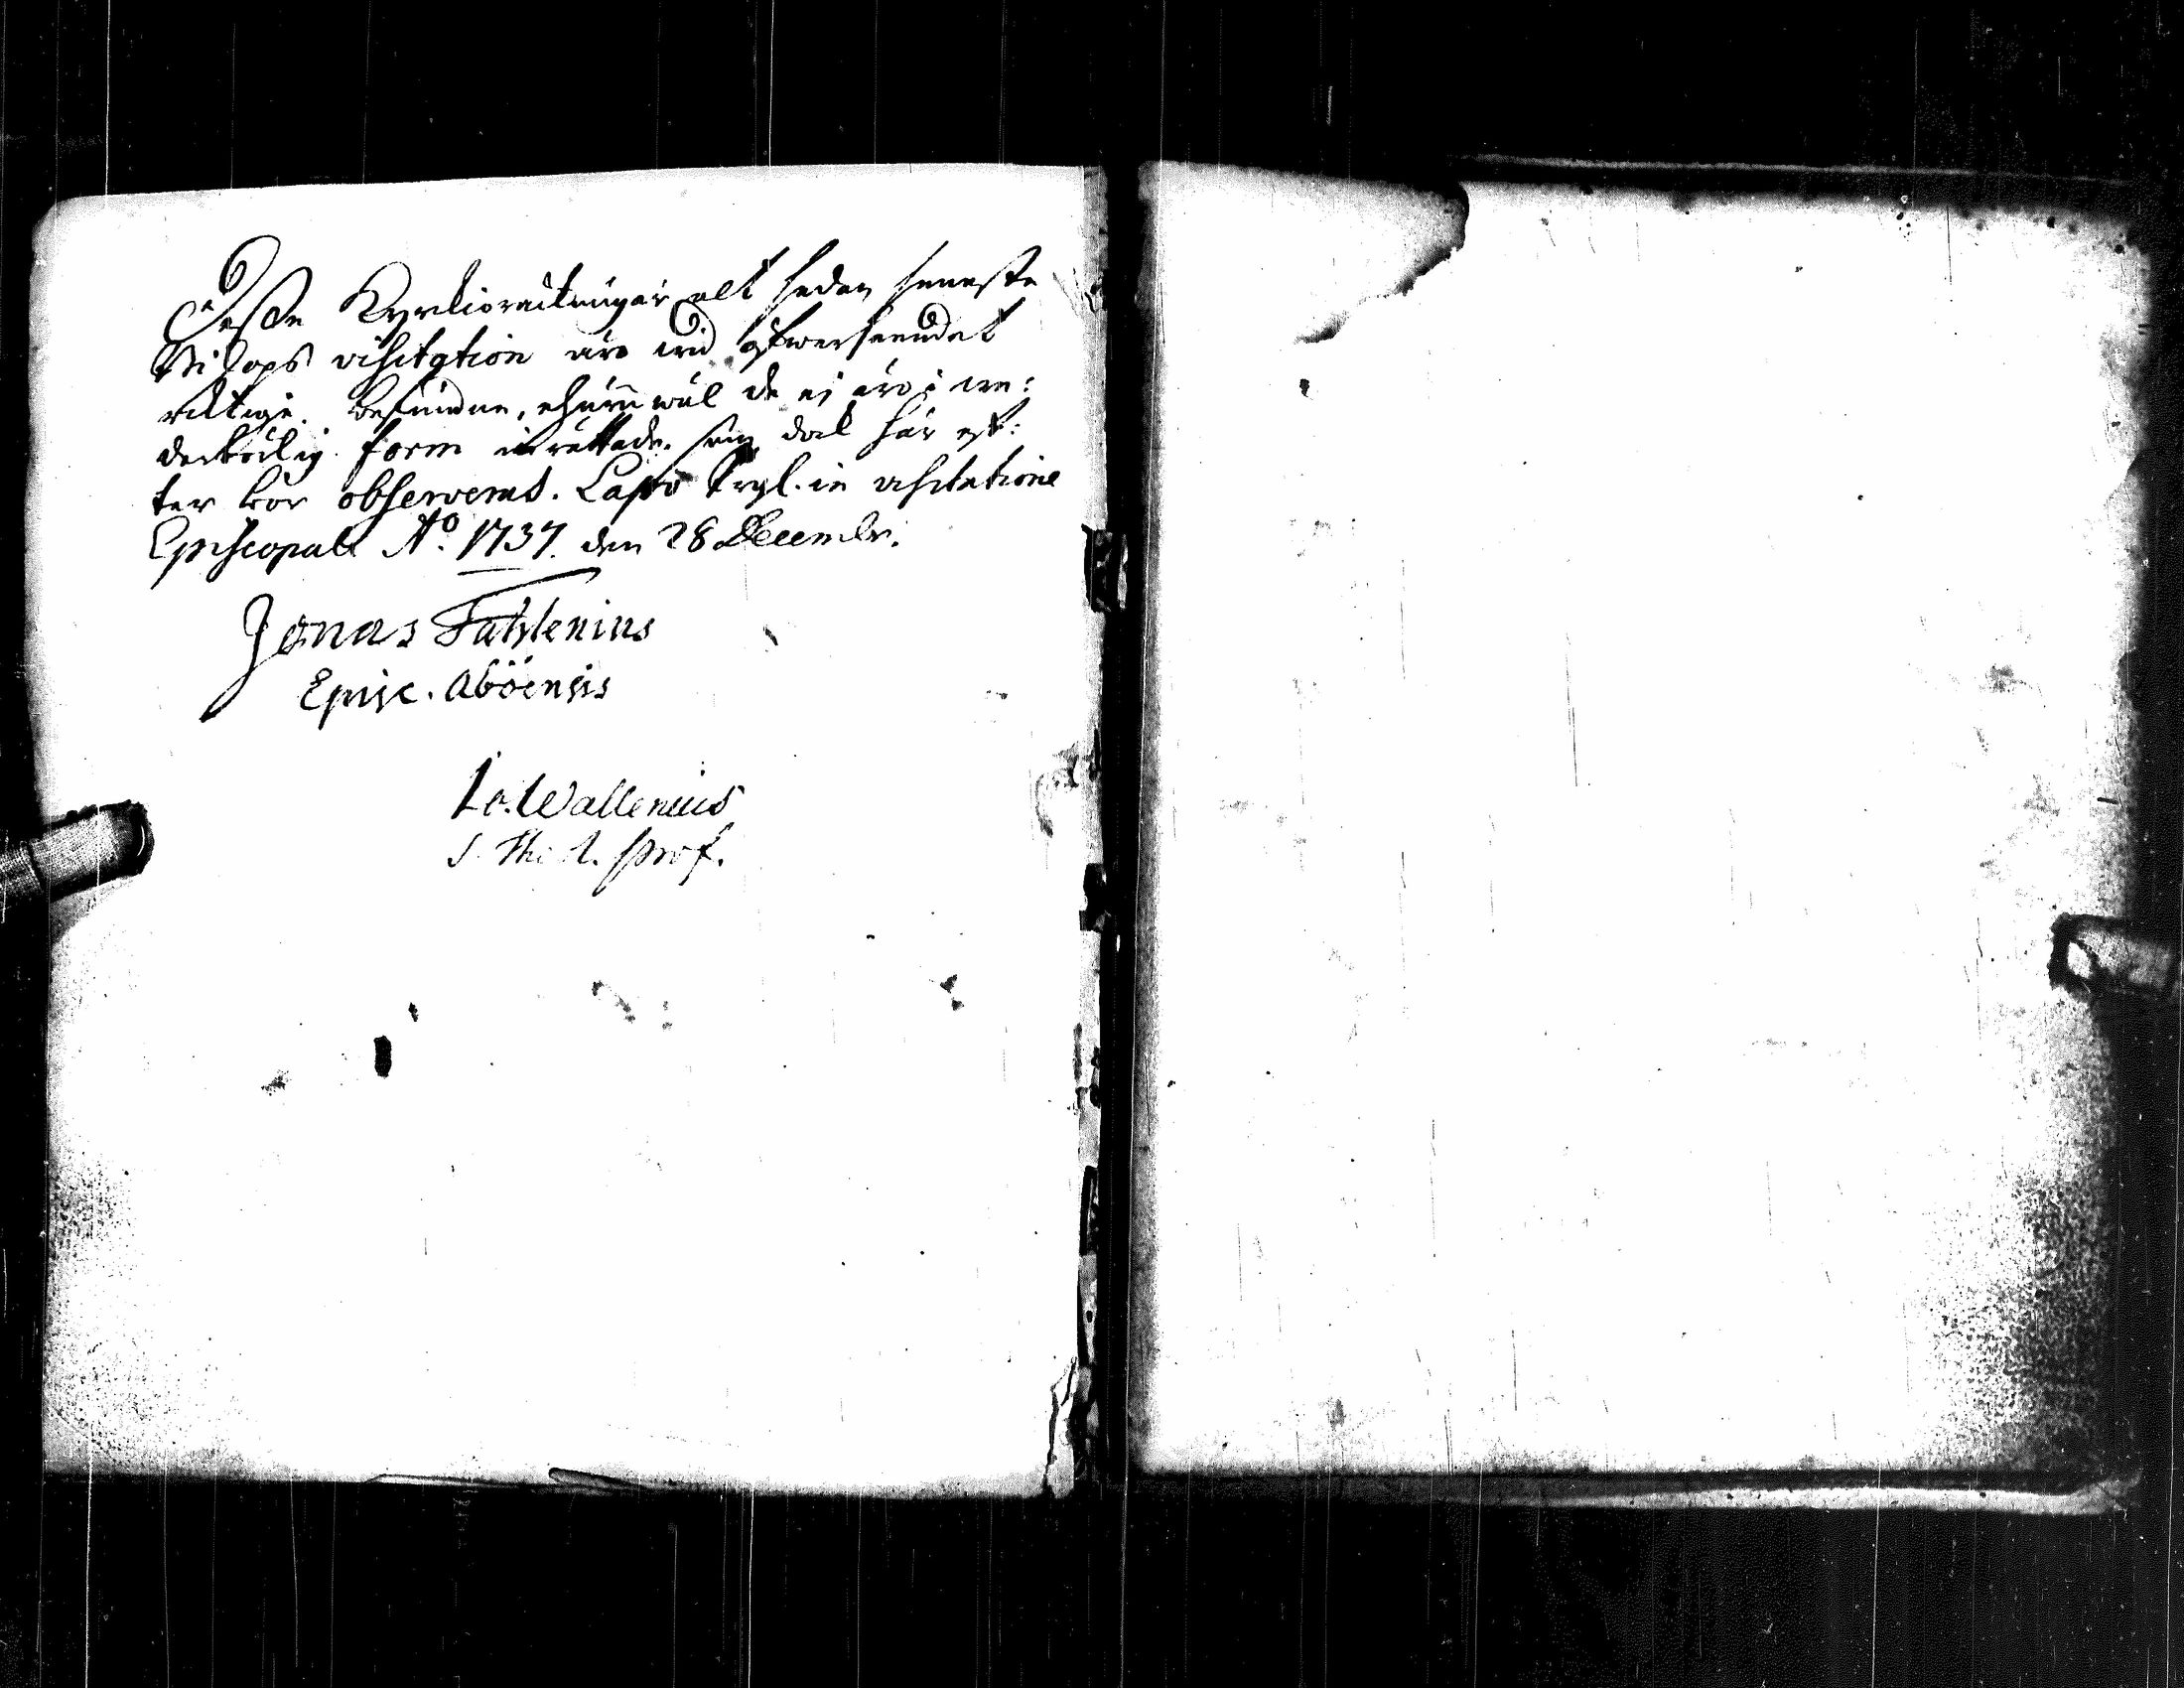 Desse Kyrkioräkningar alt sedan seneste
Biskops visitation äro wid öfwerseendet
richtige befundne, ehuru wäl de ej äro i we-
derbörlig form inrättade, som dock här ef-
ter bör observeras. Lapo Prgl. in visitatione
Episcopali Ao. 1737. den 28 Decembr.
Jonas Fahlenius
Episc. Aböensis
Io. Wallenius
S. Theol. Prof.